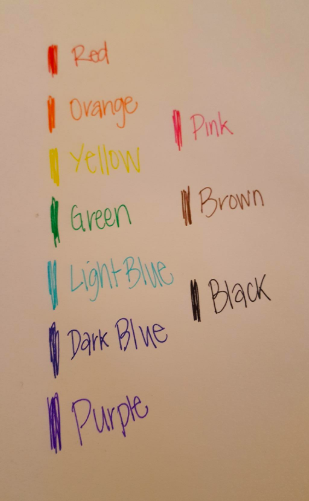 Red
Orange
Yellow
Green
Light Blue
Dark Blue
Purple
Pink
Brown
Black